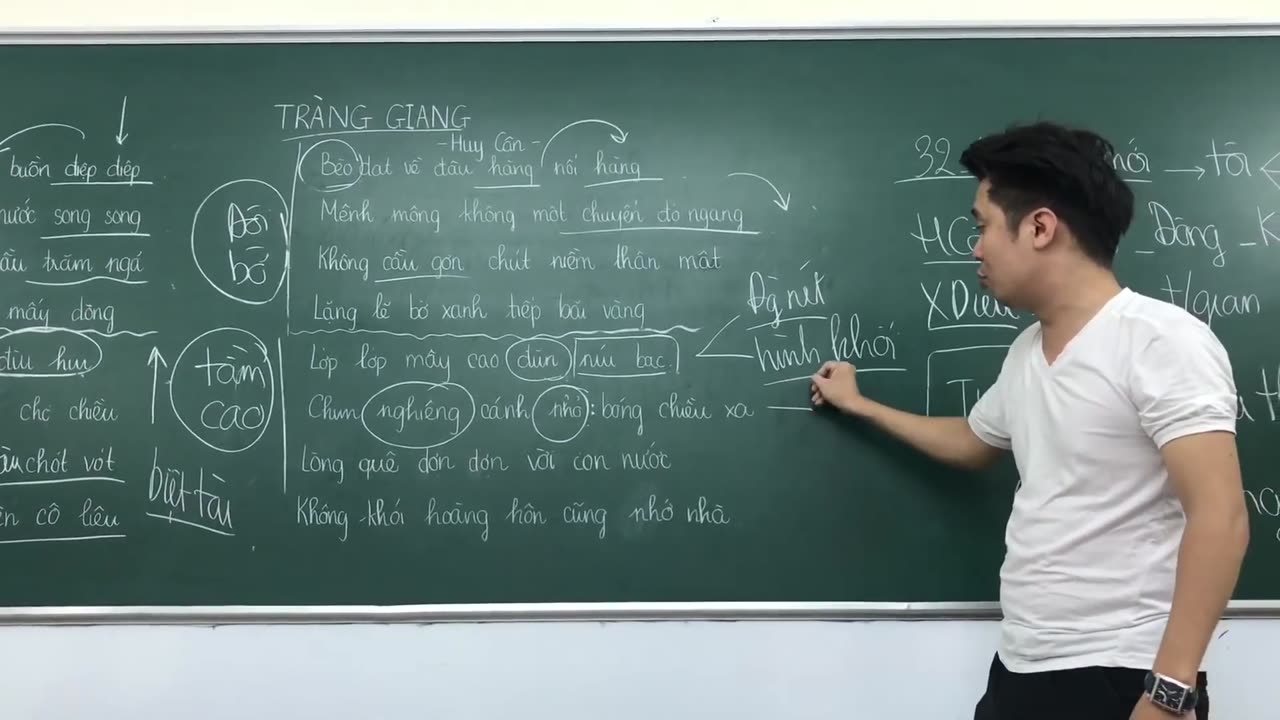 buồn điệp điệp
nước song song
trăm ngả
mấy dòng
đìu hiu
chợ chiều
chót vót
cô liêu
tầm
cao
biệt tài
TRÀNG GIANG
- Huy Cận -
Bèo dạt về đâu hàng nối hàng
Mênh mông không một chuyến đò ngang
Không cầu gợn chút niềm thân mật
Lặng lẽ bờ xanh tiếp bãi vàng
Lớp lớp mây cao đùn núi bạc.
Chim nghiêng cánh nhỏ: bóng chiều xa
Lòng quê dợn dợn vời con nước
Không khói hoàng hôn cũng nhớ nhà
nét
hình khối
32
tôi
XDiệu
Đãng